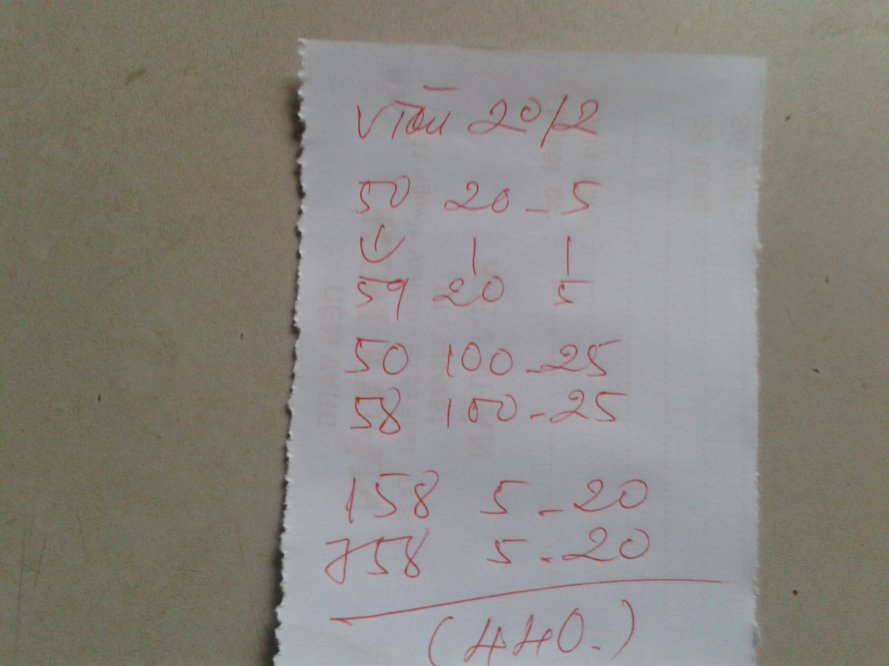 VTàu 20/2
50 20 - 5
↓ | |
59 20 5
50 100 - 25
58 100 - 25
158 5 - 20
758 5 - 20
(440.)